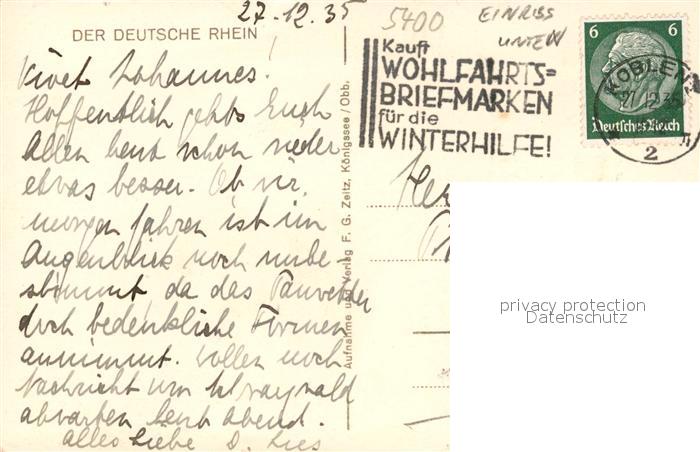 27.12.35
5400 EINRISS
UNTEN
DER DEUTSCHE RHEIN
Vivet Johannes!
Hoffentlich gehts Euch
Allen heut schon wieder
etwas besser. Ob wir
morgen fahren ist im
Augenblick noch unbe-
stimmt da das Tauwetter
doch bedenkliche Formen
annimmt. Wollen noch
Nachricht von
abwarten heut abend.
Alles Liebe
Aufnahme und Verlag F. G. Zeitz, Königssee / Obb.
Kauft
WOHLFAHRTS=
BRIEFMARKEN
für die
WINTERHILFE!
6 6
Deutsches Reich
KOBLENZ
27.12.35
2
privacy protection
Datenschutz